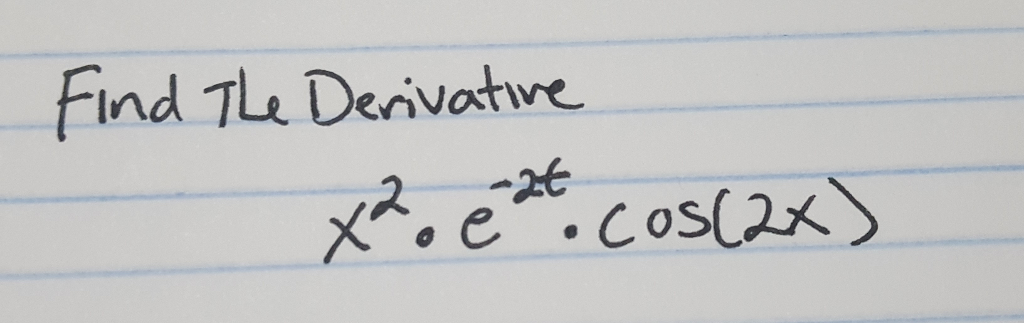 Find The Derivative
x² • e⁻²ᵗ • cos(2x)